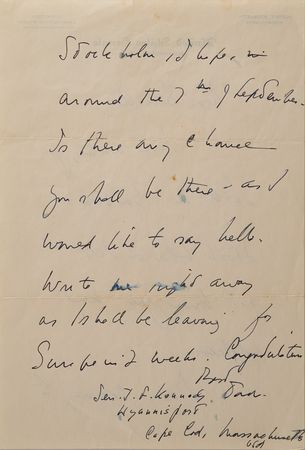 Stockholm, I hope, in
around the 7th of September.
Is there any chance
you shall be there - as I
would like to say hello.
Write me right away
as I shall be leaving for
Europe in 2 weeks. Congratulations
Best
Sen. J. F. Kennedy
Hyannisport
Cape Cod, Massachusetts
USA